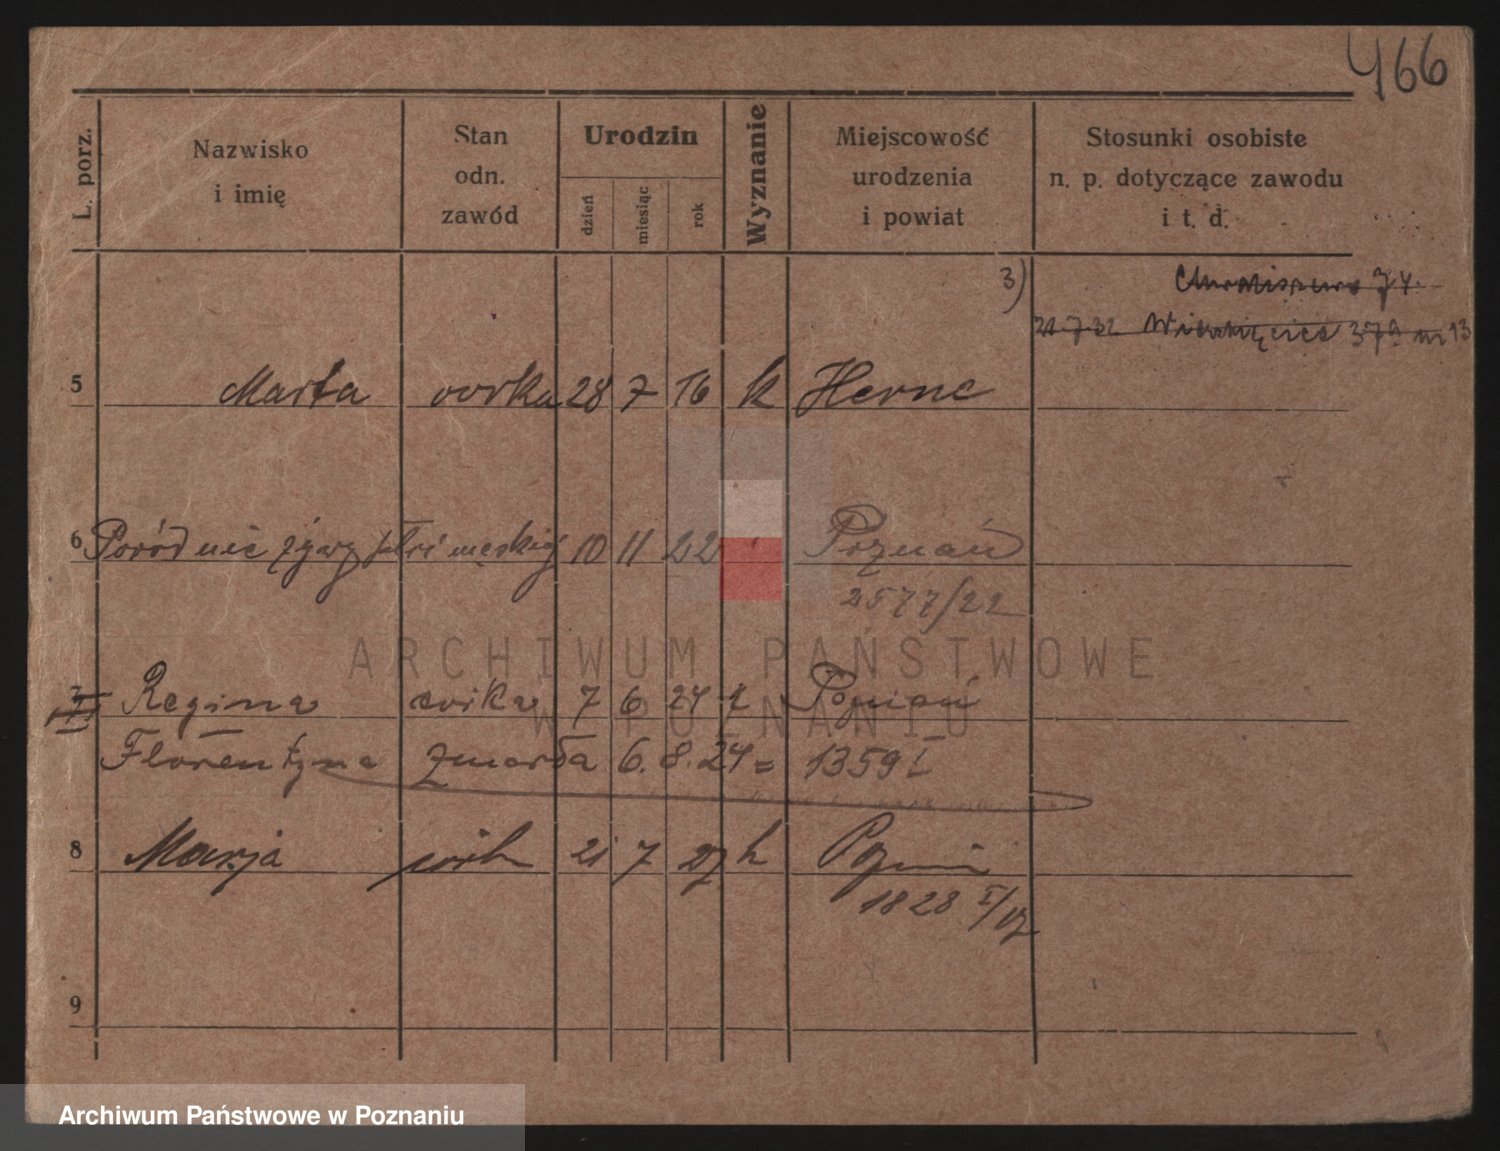 466
L. porz.
Nazwisko
i imię
Stan
odn.
zawód
Urodzin
dzień
miesiąc
rok
Wyznanie
Miejscowość
urodzenia
i powiat
Stosunki osobiste
n. p. dotyczące zawodu
i t. d.
3)
74
31.7.32 37a m 13
5 Marta córka 28 7 16 k Herne
6 Poród nie żywy płci męskiej 10 11 22 Poznań
2577/22
ARCHIWUM PAŃSTWOWE
W POZNANIU
7 Regina córka 7 6 24 k Poznań
Florentyna zmarła 6. 8. 24 = 1359 I
8 Marja córka 21 7 27 k Poznań
1828 I/27
9
Archiwum Państwowe w Poznaniu